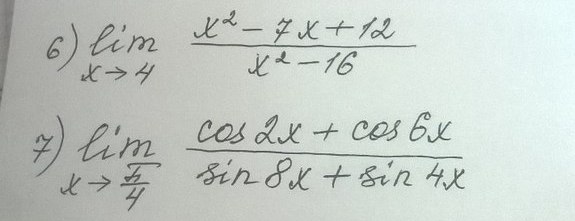 6) lim x→4 (x² - 7x + 12)/(x² - 16)
7) lim x→π/4 (cos 2x + cos 6x)/(sin 8x + sin 4x)